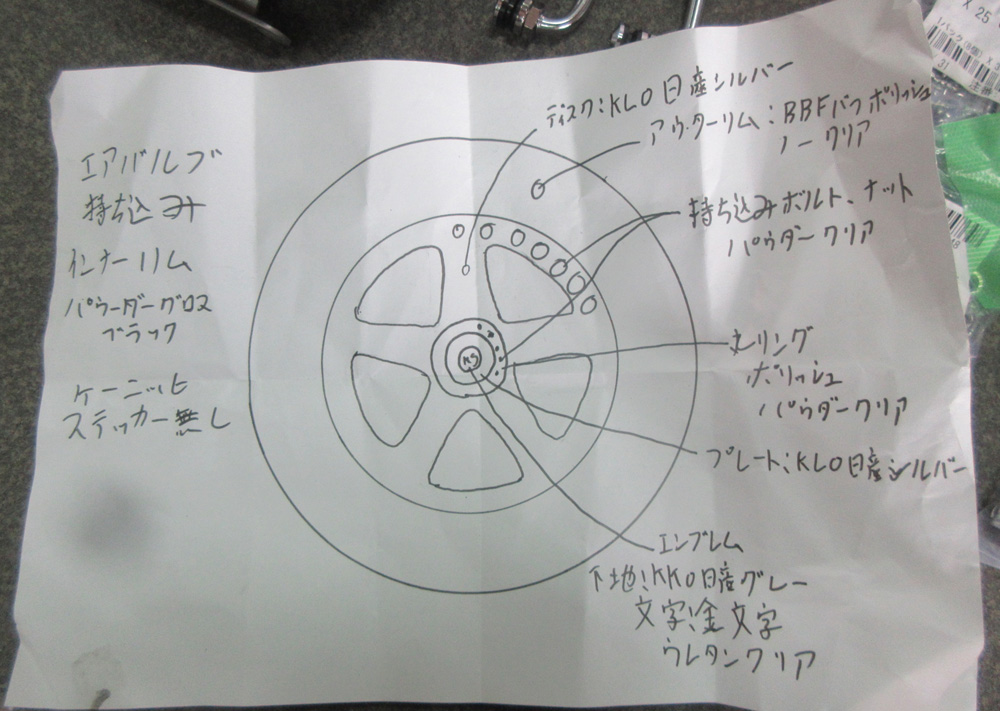 エアバルブ
持ち込み
インナーリム
パウーダーグロス
ブラック
ケーニッヒ
ステッカー無し
ディスク:KL0日産シルバー
アウターリム:BBFバフポリッシュ
ノークリア
持ち込みボルト、ナット
パウダークリア
丸リング
ポリッシュ
パウダークリア
プレート:KL0日産シルバー
エンブレム
下地:KK0日産グレー
文字:金文字
ウレタンクリア
KS
X 25
31